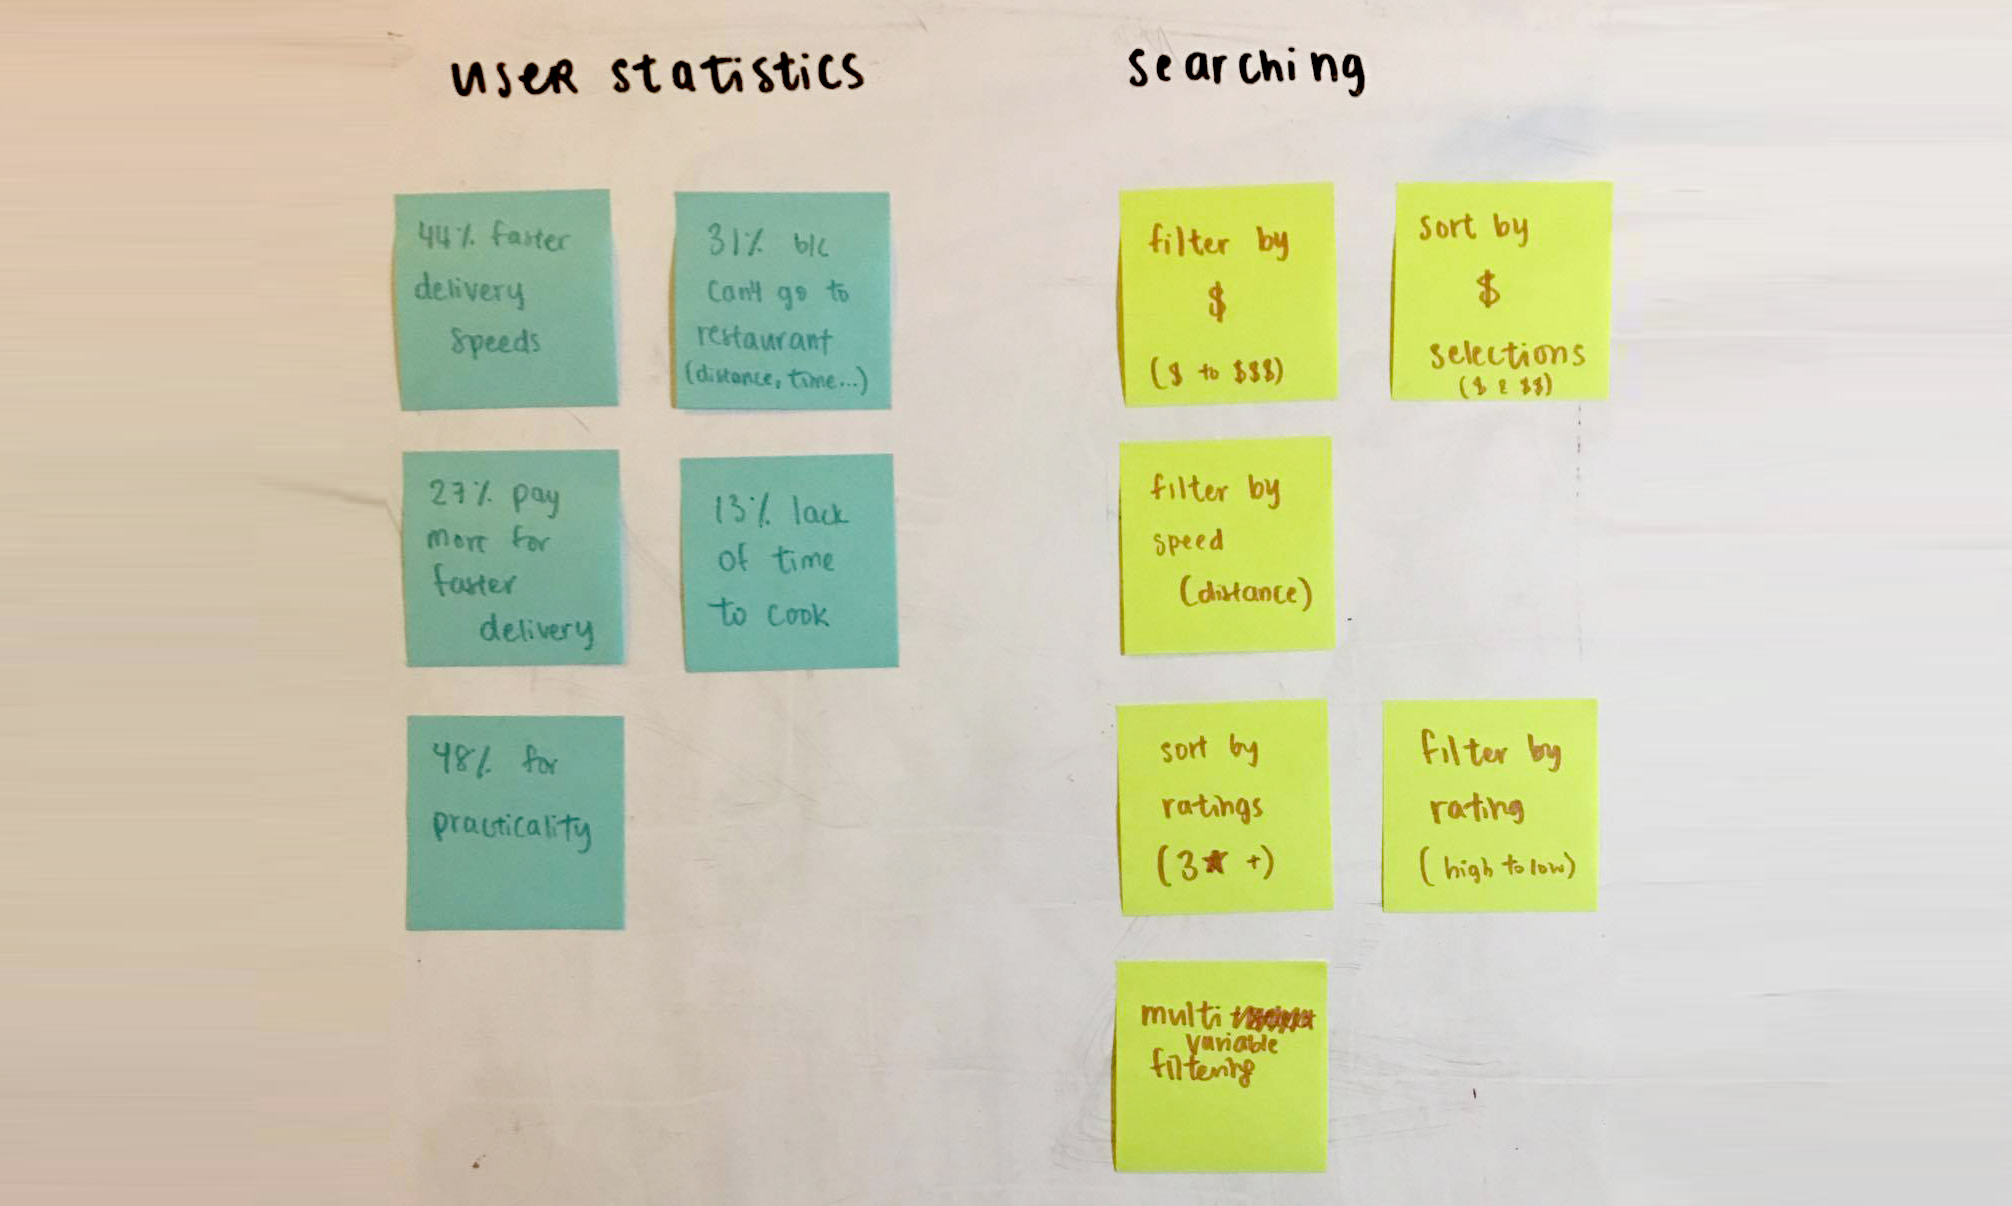 user statistics
44% faster
delivery
speeds
31% b/c
can't go to
restaurant
(distance, time...)
27% pay
more for
faster
delivery
13% lack
of time
to cook
48% for
practicality
searching
filter by
$
($ to $$$)
sort by
$
selections
($ & $$)
filter by
speed
(distance)
sort by
ratings
(3★ +)
filter by
rating
(high to low)
multi
variable
filtering